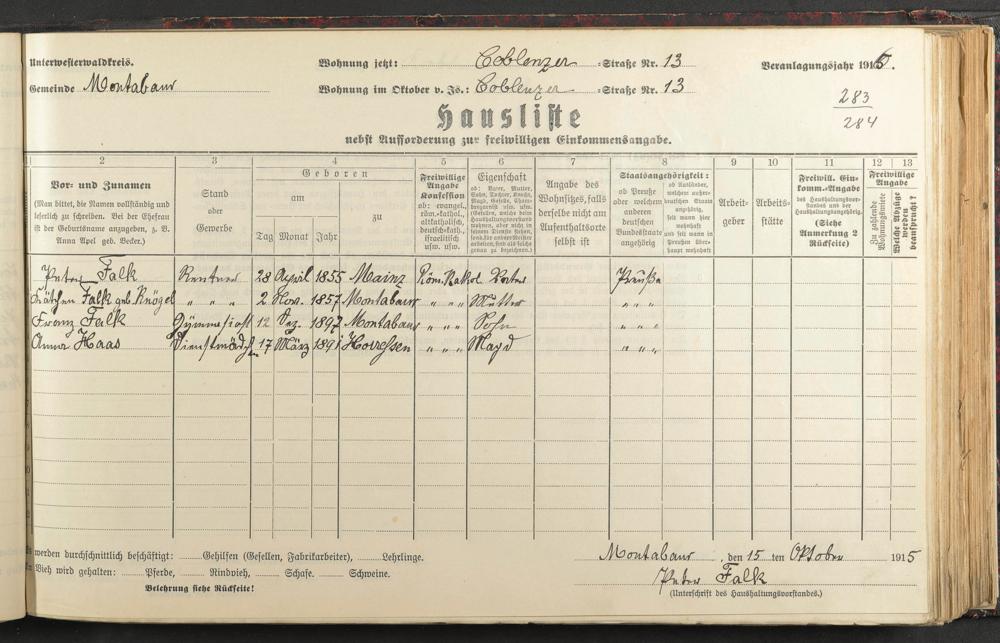 Unterwesterwaldkreis.
Gemeinde Montabaur
Wohnung jetzt: Coblenzer =Straße Nr. 13
Wohnung im Oktober v. Js.: Coblenzer =Straße Nr. 13
Veranlagungsjahr 1916.
283
284
Hausliste
nebst Aufforderung zur freiwilligen Einkommensangabe.
2 3 4 5 6 7 8 9 10 11 12 13
Vor- und Zunamen
(Man bittet, die Namen vollständig und
leserlich zu schreiben. Bei der Ehefrau
ist der Geburtsname anzugeben, z. B.
Anna Apel geb. Becker.)
Stand
oder
Gewerbe
Geboren
am
zu
Tag Monat Jahr
Freiwillige
Angabe
Konfession
ob: evangel.,
röm.-kathol.,
altkatholisch,
deutsch-kath.,
israelitisch
usw. usw.
Eigenschaft
ob: Vater, Mutter,
Sohn, Tochter, Knecht,
Magd, Geselle, Cham-
bregarnist usw. usw.
(Personen, welche beim
Haushaltungsvorstand
wohnen, aber nicht in
seinem Dienste stehen,
sind als solche
genau zu bezeichnen.)
Angabe des
Wohnsitzes, falls
derselbe nicht am
Aufenthaltsorte
selbst ist
Staatsangehörigkeit:
ob Preuße
oder welchem
anderen
deutschen
Bundesstaate
angehörig
ob Ausländer,
welchem außer-
deutschen Staate
angehörig,
seit wann hier
wohnhaft
und seit wann in
Preußen über-
haupt wohnhaft
Arbeit-
geber
Arbeits-
stätte
Freiwill. Ein-
komm.-Angabe
des Haushaltungsvor-
standes und der
Haushaltungsangehörig.
(Siehe
Anmerkung 2
Rückseite)
Freiwillige
Angabe
Zu zahlende
Wohnungsmiete
Welche Abzüge
werden
beansprucht?
Peter Falk Rentner 28 April 1855 Mainz Röm. Kathol Vater Preuße
Käthchen Falk geb. Knögel " " " 2 Nov. 1857 Montabaur " " " Mutter " " "
Franz Falk Gymnasiast 12 Dez. 1897 Montabaur " " " Sohn " " "
Anna Haas Dienstmädchen 17 März 1891 " " " Magd " " "
werden durchschnittlich beschäftigt: Gehilfen (Gesellen, Fabrikarbeiter), Lehrlinge.
Vieh wird gehalten: Pferde, Rindvieh, Schafe. Schweine.
Belehrung siehe Rückseite!
Montabaur, den 15 ten Oktober 1915
Peter Falk
(Unterschrift des Haushaltungsvorstandes.)